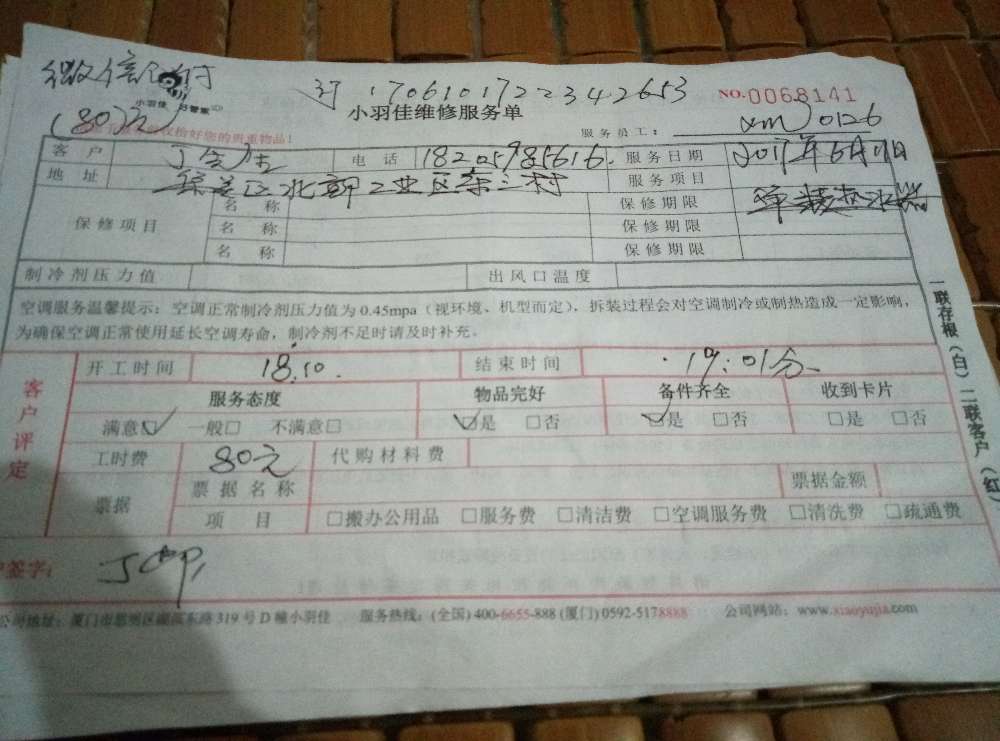 微信已付
订170610172234 2653
小羽佳 好管家
NO.0068141
(80元)
小羽佳维修服务单
服务员工: xm0126
客户 电话 18205985616 服务日期 2017年6月11日
地址 集美区 工业区 村 服务项目
保修项目 名称 保修期限 安装热水器
名称 保修期限
名称 保修期限
制冷剂压力值 出风口温度
空调服务温馨提示:空调正常制冷剂压力值为0.45mpa(视环境、机型而定),拆装过程会对空调制冷或制热造成一定影响,
为确保空调正常使用延长空调寿命,制冷剂不足时请及时补充。
一联存根(白)二联客户(红)
客户评定
开工时间 18:10. 结束时间 19:01分
服务态度 物品完好 备件齐全 收到卡片
满意☑ 一般□ 不满意□ ☑是 □否 ☑是 □否 □是 □否
工时费 80元 代购材料费
票据 票据名称 票据金额
项目 □搬办公用品 □服务费 □清洁费 □空调服务费 □清洗费 □疏通费
户签字:
公司地址:厦门市思明区 东路319号D幢小羽佳 服务热线:(全国)400-6655-888(厦门)0592-5178888 公司网站:www.xiaoyujia.com